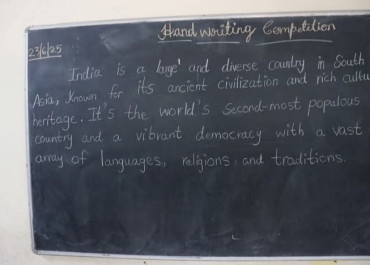 Handwriting Competition
23/6/25
India is a large and diverse country in South
Asia, known for its ancient civilization and rich
heritage. It's the world's second-most populous
country and a vibrant democracy with a vast
array of languages, religions and traditions.